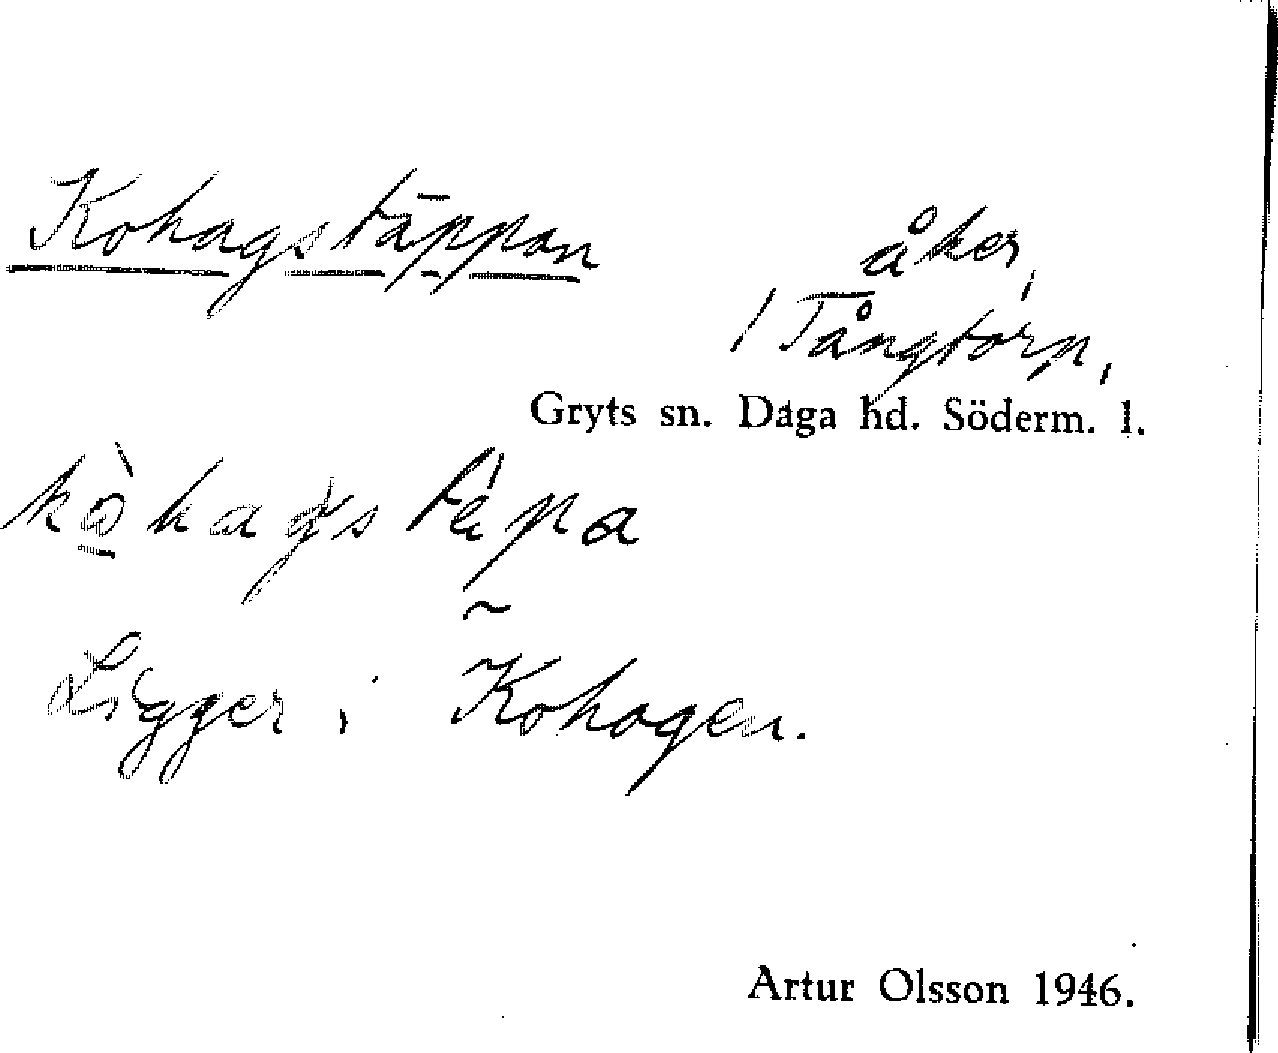 Kohagstäppan
åker,
/ Tångtorp,
Gryts sn. Daga hd. Söderm. l.
kò̱hagstä́pa
Ligger i Kohagen.
Artur Olsson 1946.